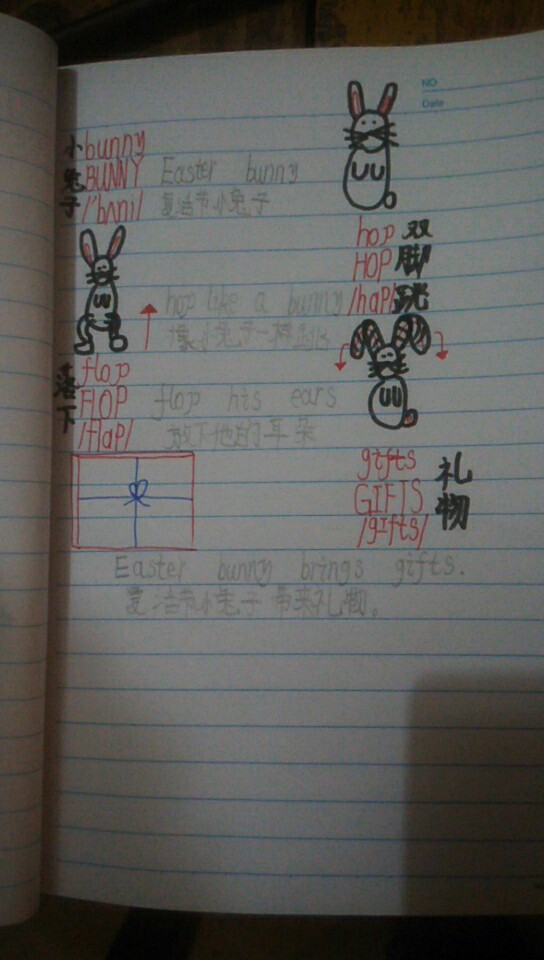 NO
Date
小兔子
bunny
BUNNY Easter bunny
/'bʌni/ 复活节小兔子
hop 双脚跳
HOP
/hap/
hop like a bunny
像小兔子一样
flop 落下
FlOP flop his ears
/flap/ 放下他的耳朵
gifts 礼物
GIFTS
/gɪfts/
Easter bunny brings gifts.
复活节小兔子带来礼物。